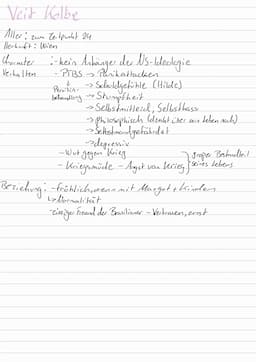 Veit Kolbe
Alter: zum Zeitpunkt 24
Herkunft: Wien
Charakter : - kein Anhänger der NS-Ideologie
Verhalten - PTBS → Panikattacken
→ Schuldgefühle (Hilde)
behandlung → Stumpfheit
→ Selbstmitleid, Selbsthass
→ philosophisch (denkt über sein Leben nach)
→ Selbstmordgefährdet
→ depressiv
- Wut gegen Krieg
- Kriegsmüde - Angst vor Krieg } großer Bestandteil seines Lebens
Beziehung: - Fröhlich, wenn mit Margot + Kindern
↳ Normalität
- einziger Freund der Brasilianer - Vertrauen, ernst